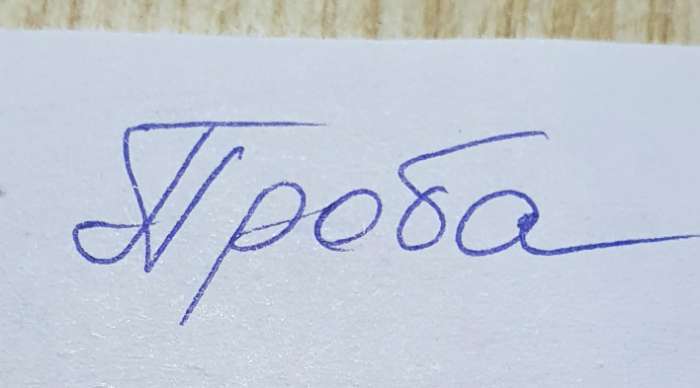 Проба